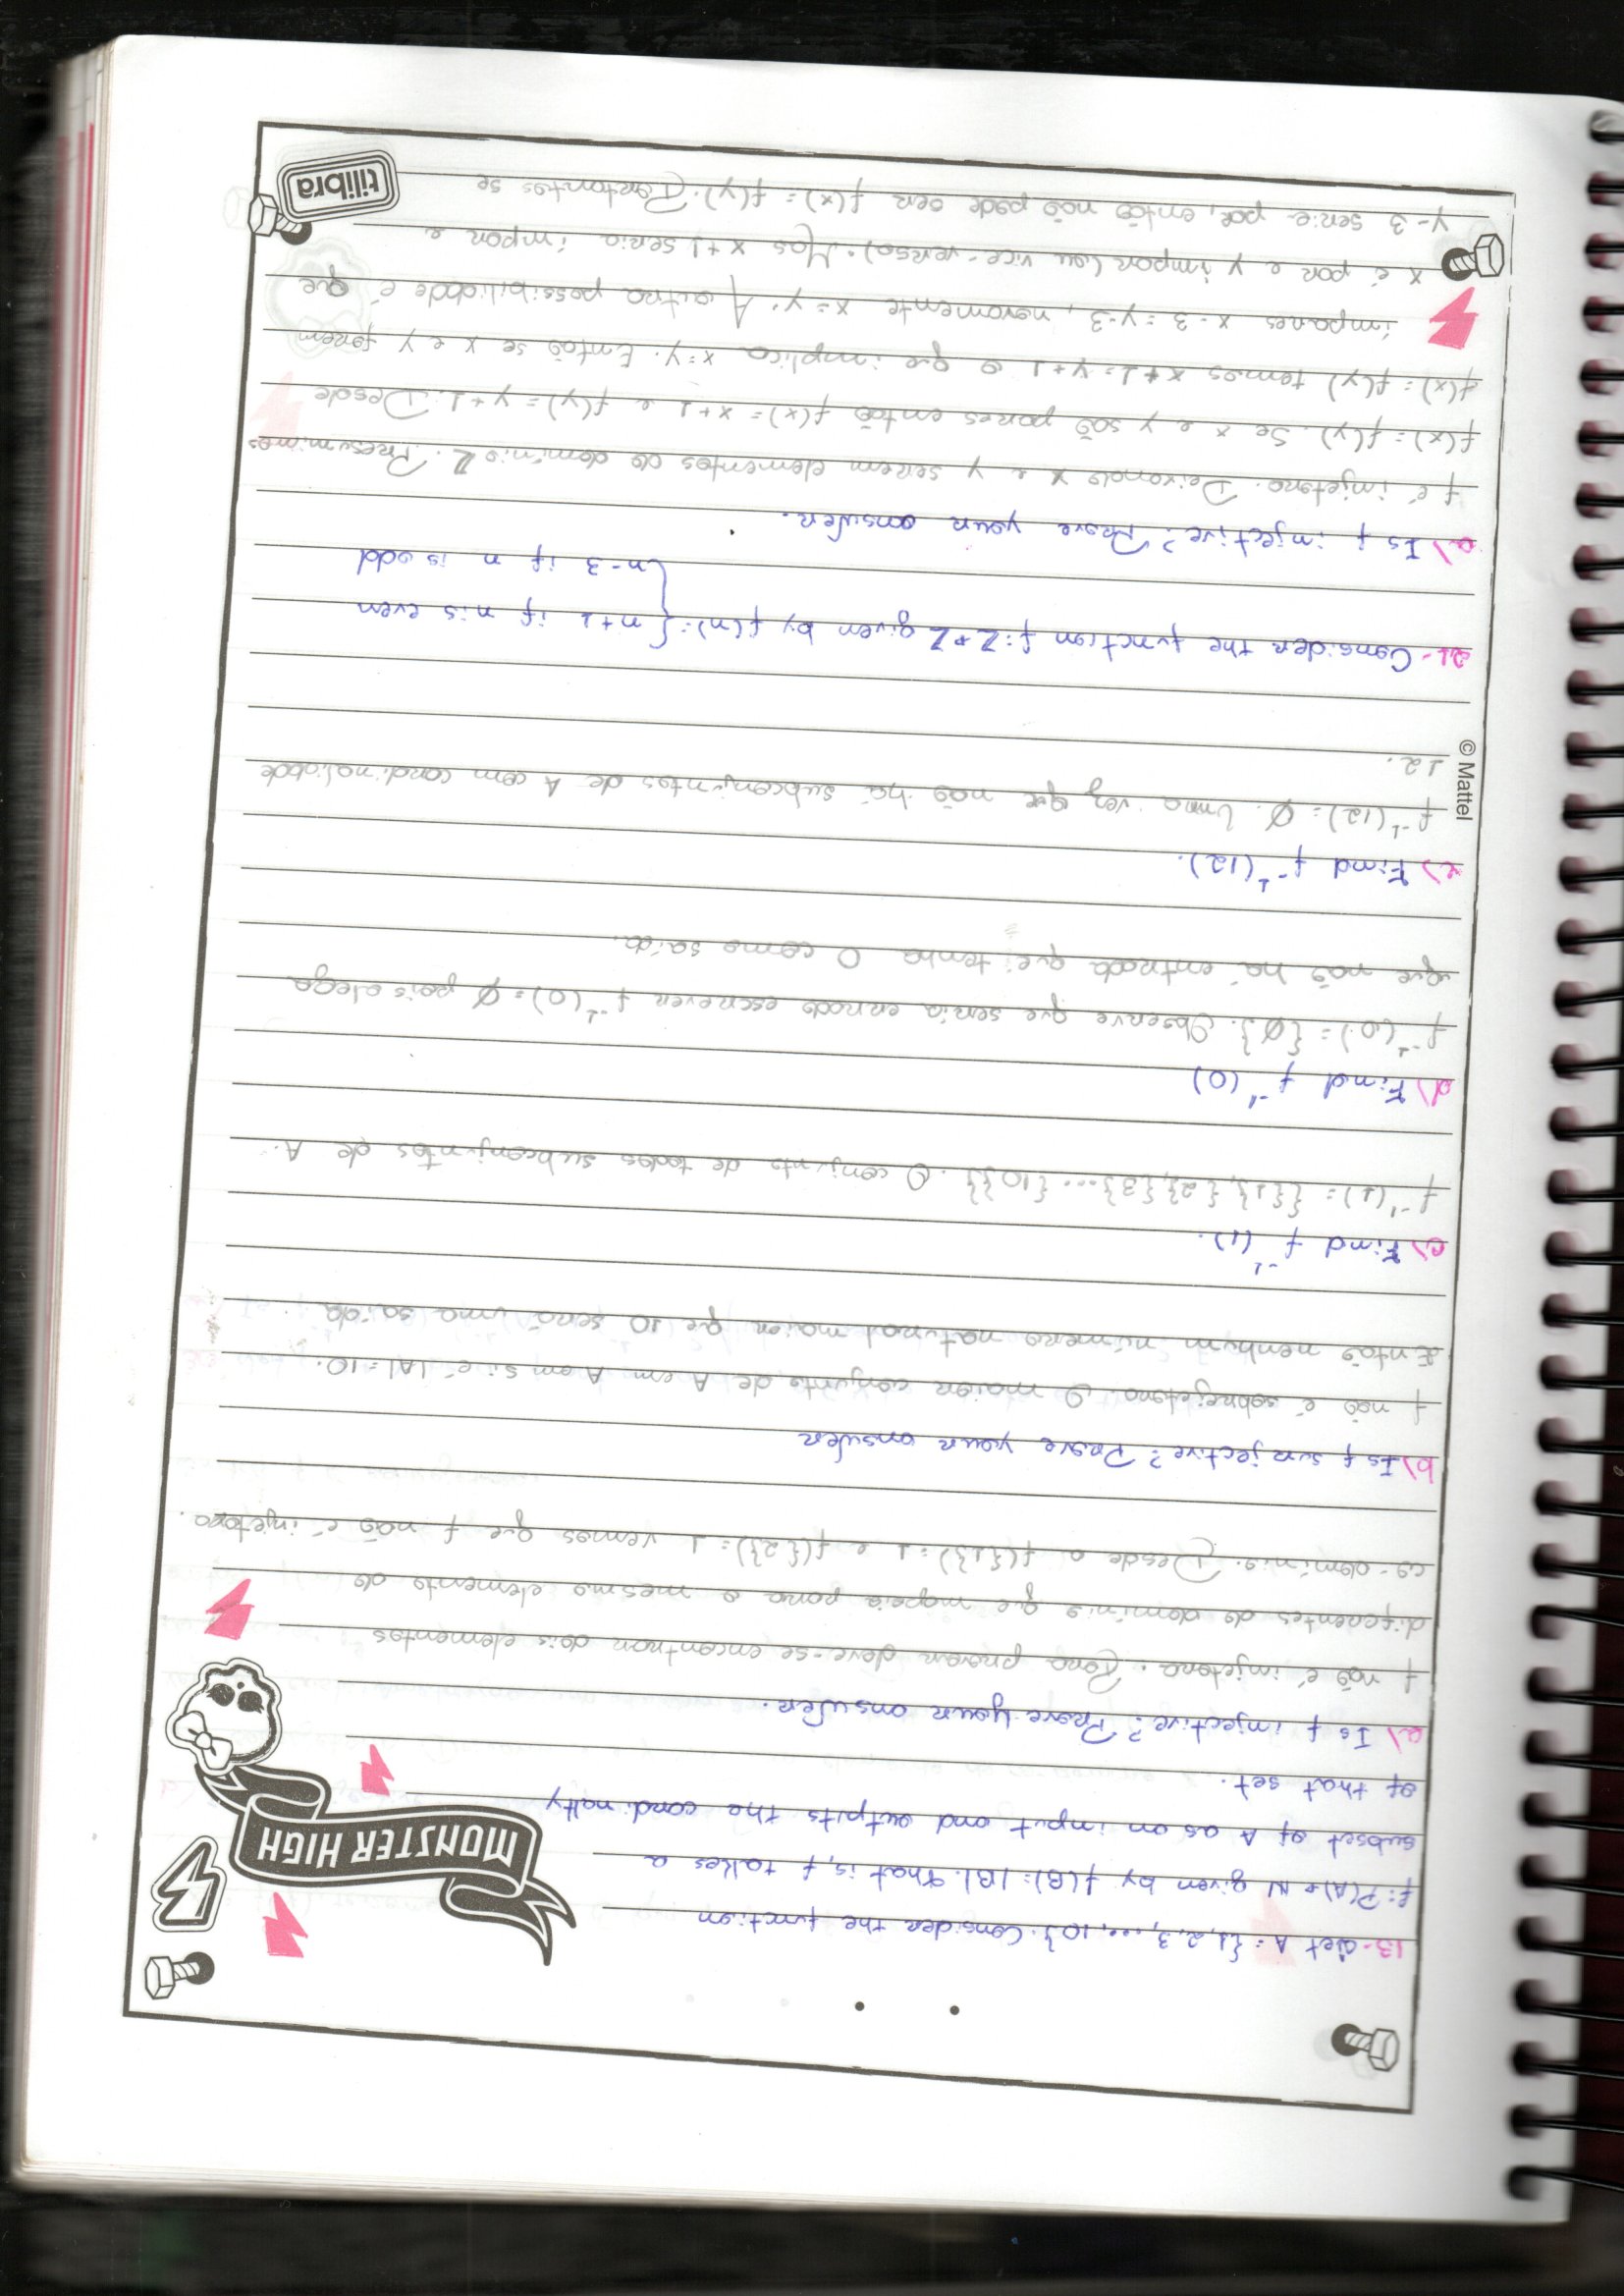 MONSTER HIGH
13- Let A = {1,2,3,...,10}. Consider the function
f:P(A)→N given by f(B)=|B|. That is, f takes a
subset of A as an input and outputs the cardinalty
of that set.
a) Is f injective? Prove your answer.
f não é injetora. Para provar deve-se encontrar dois elementos
diferentes do domínio que mapeia para o mesmo elemento do
co-domínio. Desde a f({1})=1 e f({2})=1 vemos que f não é injetora.
b) Is f surjective? Prove your answer
f não é sobrejetora. O maior conjunto de A em A em si é |A|=10.
Então nenhum número natural maior que 10 será uma saída.
c) Find f⁻¹(1).
f⁻¹(1)= {{1},{2},{3}...{10}}. O conjunto de todos subconjuntos de A.
d) Find f⁻¹(0)
f⁻¹(0)= {∅}. Observe que seria errado escrever f⁻¹(0)=∅ pois alega
que não há entrada que tenha 0 como saída.
e) Find f⁻¹(12).
f⁻¹(12)= ∅. Uma vez que não há subconjuntos de A com cardinalidade
12.
21- Consider the function f:Z→Z given by f(n)={ n+1 if n is even
n-3 if n is odd
a) Is f injective? Prove your answer.
f é injetora. Deixando x e y serem elementos do domínio Z. Presumimos
f(x)=f(y). Se x e y são pares então f(x)=x+1 e f(y)=y+1. Desde
f(x)=f(y) temos x+1=y+1 o que implica x=y. Então se x e y forem
impares x-3=y-3, novamente x=y. A outra possibilidade é que
x é par e y impar (ou vice-versa). Mas x+1 seria impar e
y-3 seria par, então não pode ser f(x)=f(y). Portantos se
©Mattel
tilibra